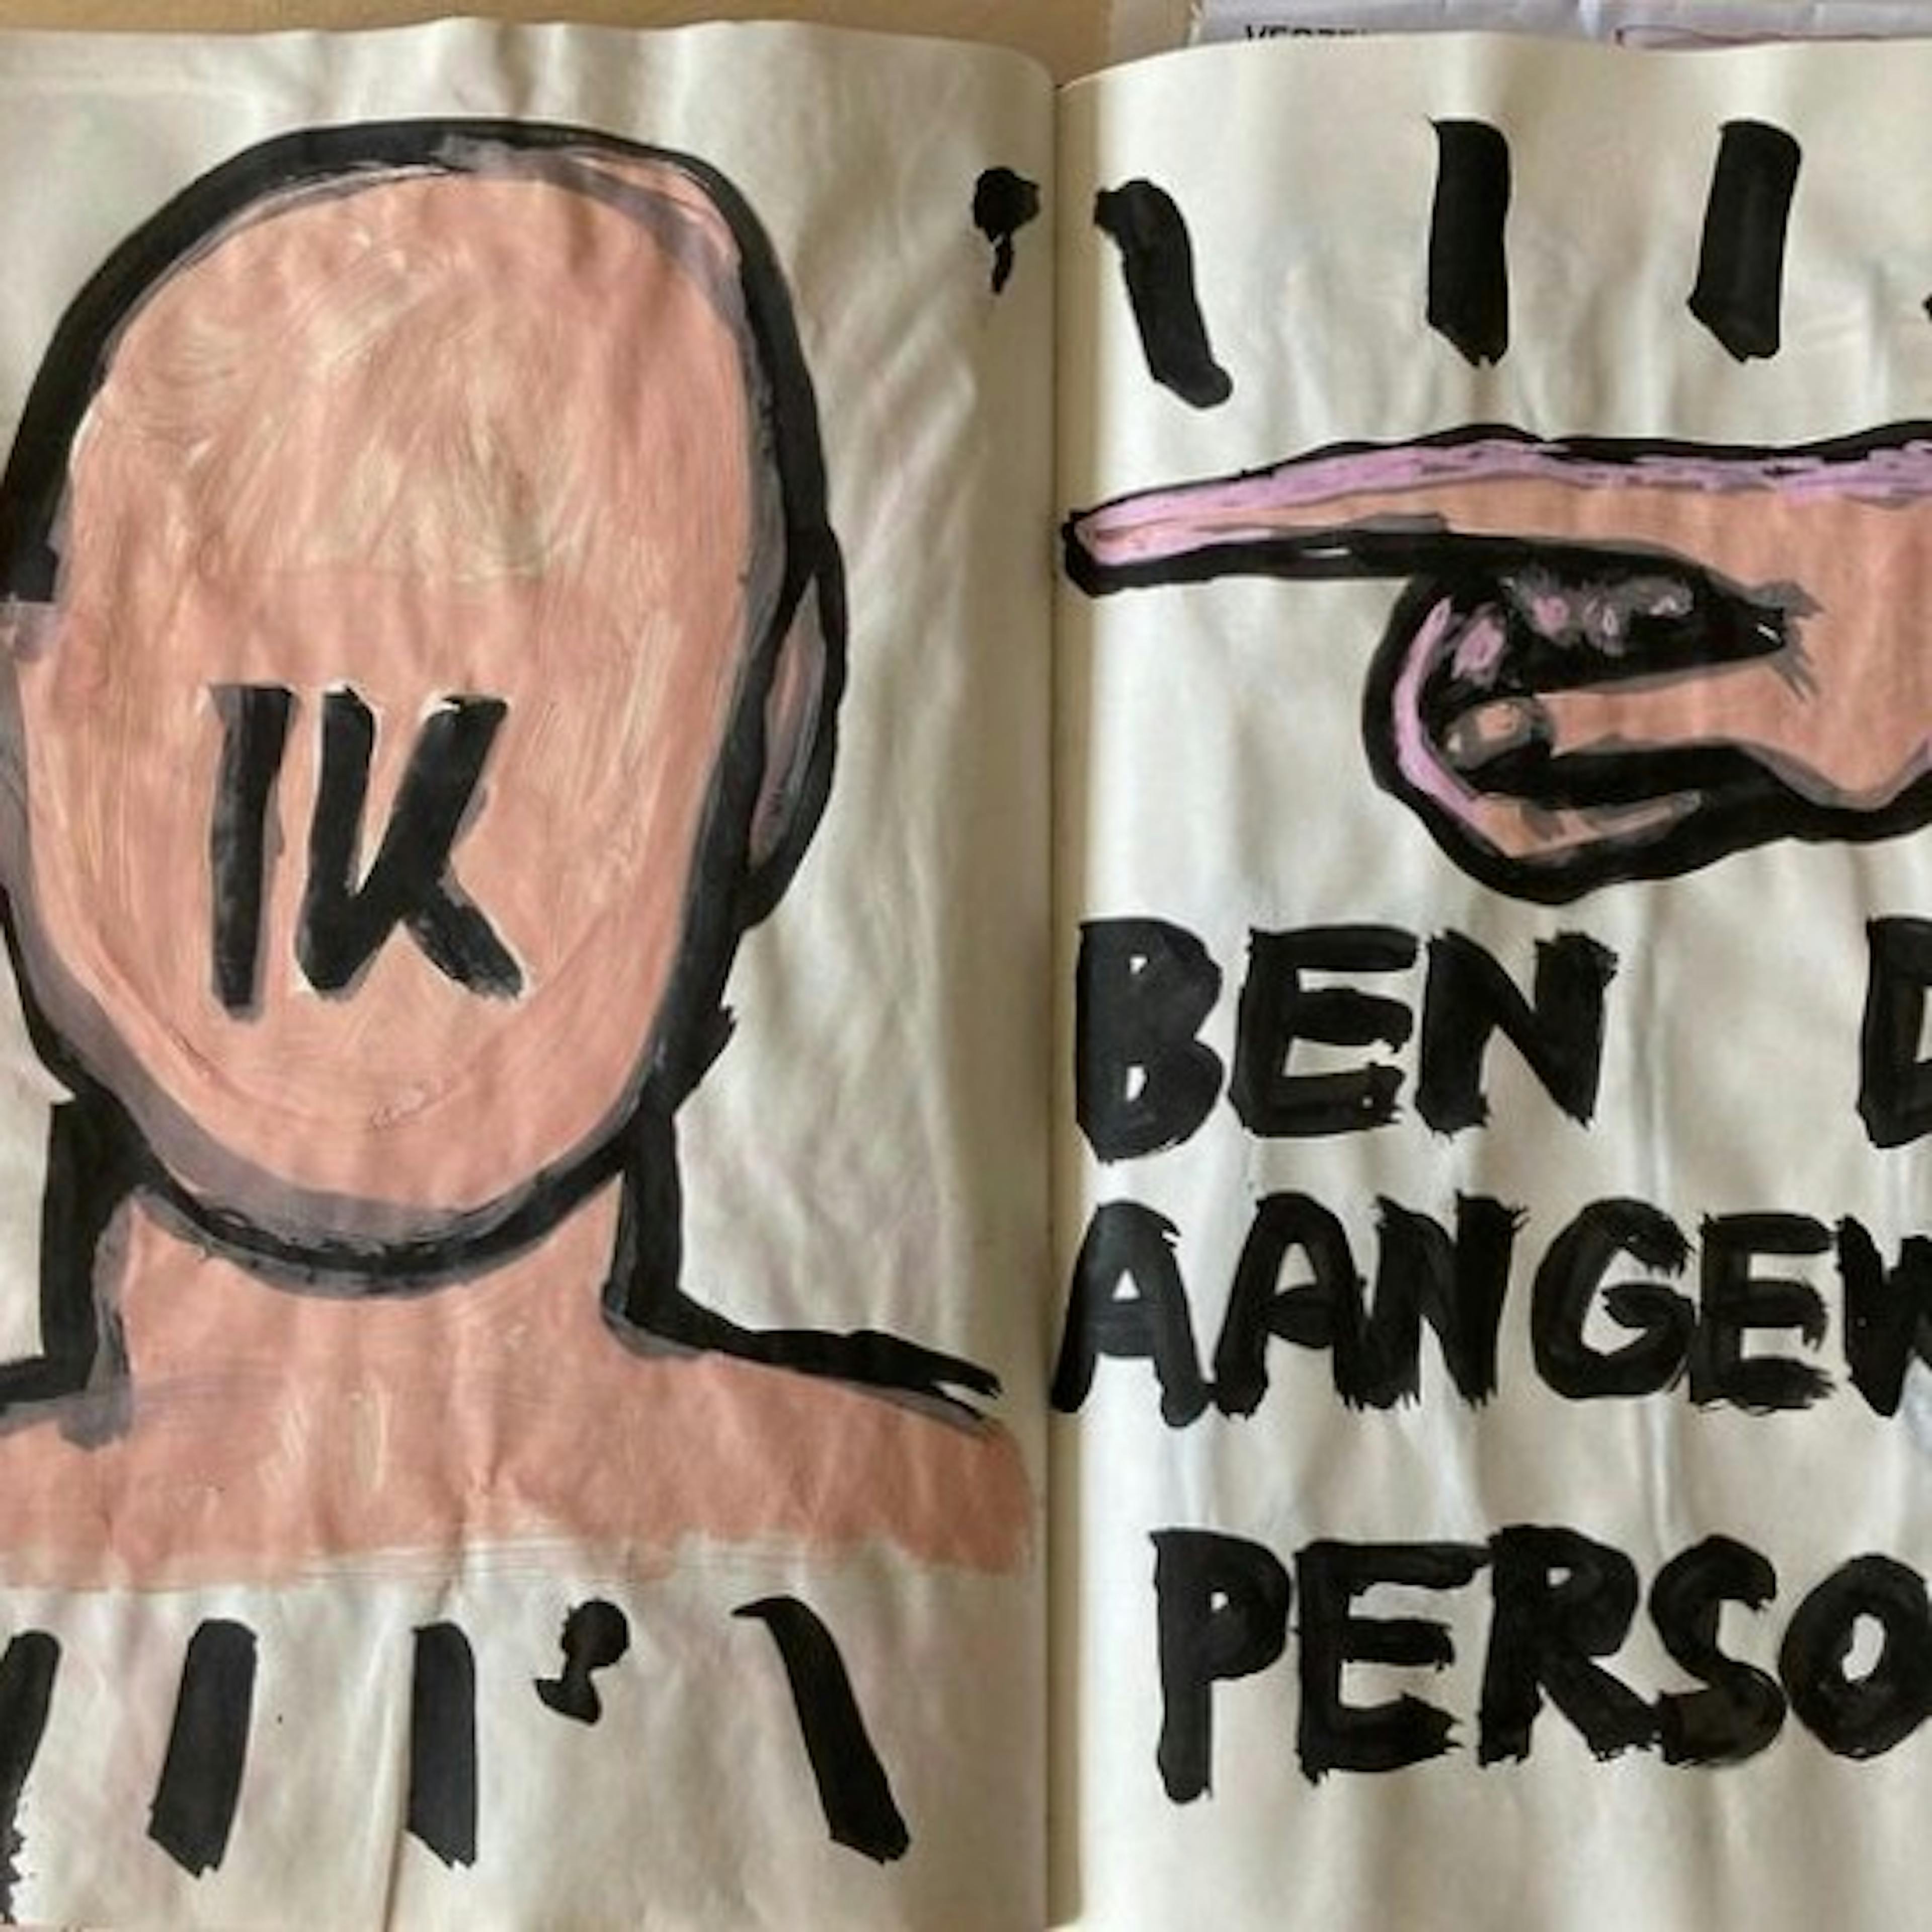 IK
BEN D
AANGEW
PERSO